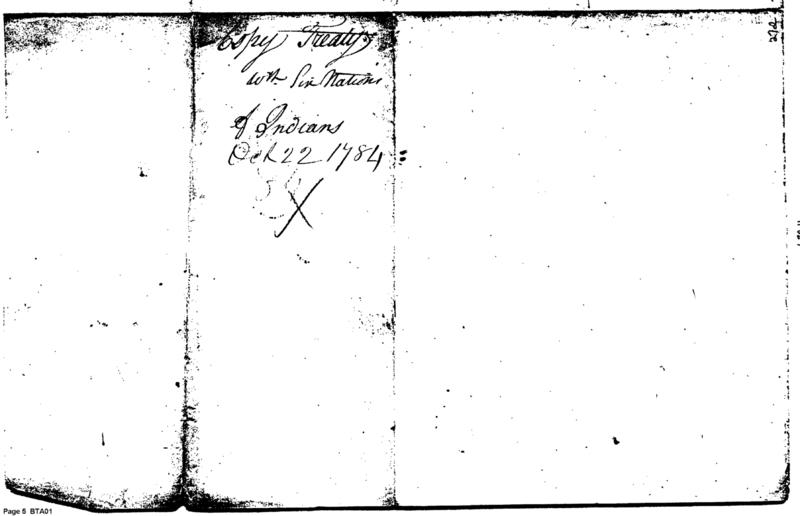 Copy Treaty
wth Six Nations
of Indians
Oct 22 1784
X
Page 5 BTA01